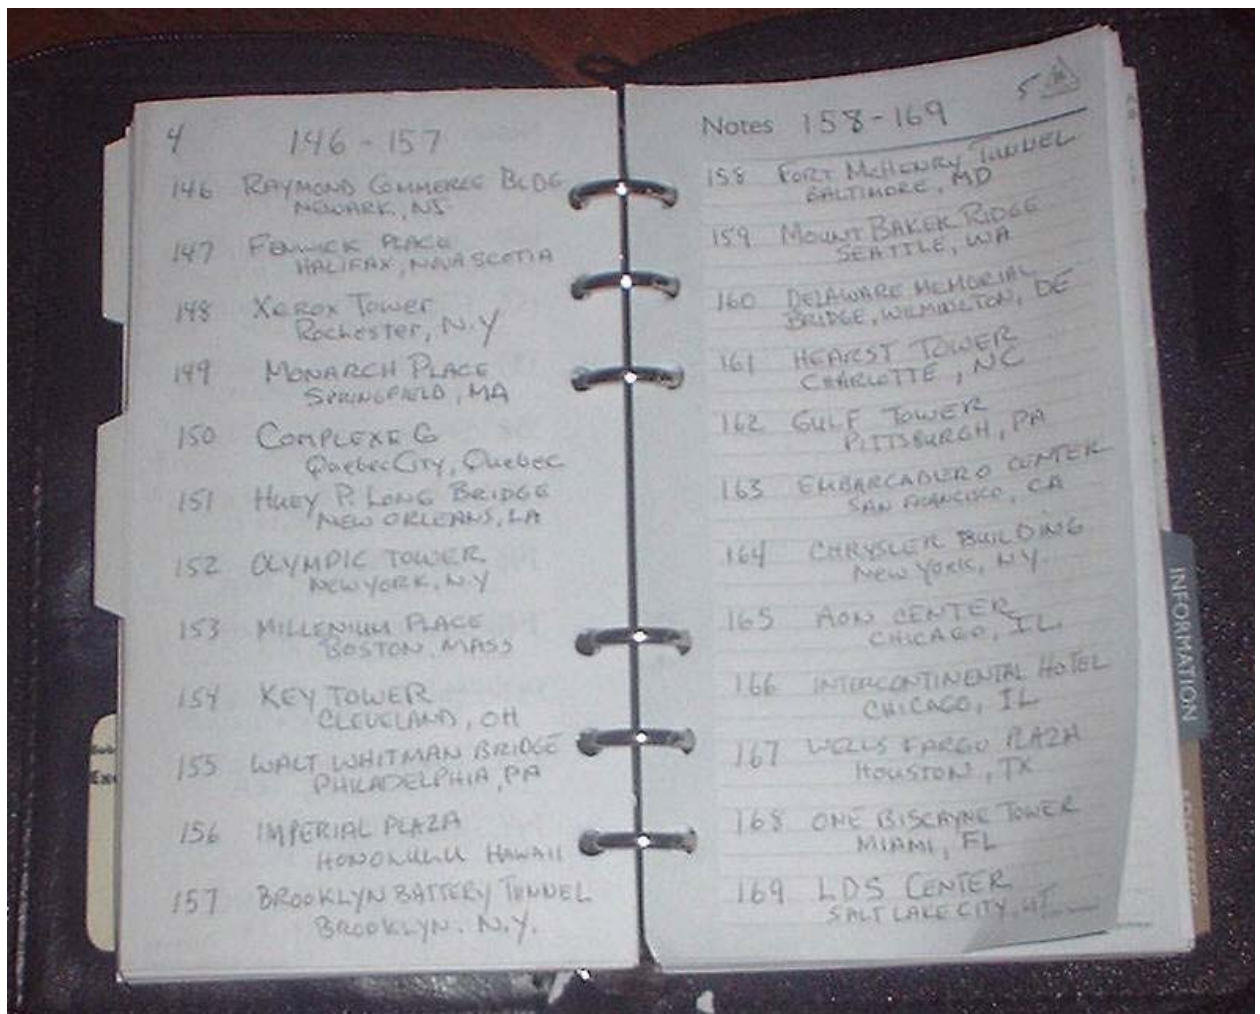 4
146 - 157
146 RAYMOND COMMERCE BLDG
NEWARK, NJ
147 FENWICK PLACE
HALIFAX, NOVA SCOTIA
148 Xerox Tower
Rochester, N.Y
149 MONARCH PLACE
SPRINGFIELD, MA
150 COMPLEXE G
Quebec City, Quebec
151 HUEY P. LONG BRIDGE
NEW ORLEANS, LA
152 OLYMPIC TOWER
NEW YORK, N.Y
153 MILLENIUM PLACE
BOSTON, MASS
154 KEY TOWER
CLEVELAND, OH
155 WALT WHITMAN BRIDGE
PHILADELPHIA, PA
156 IMPERIAL PLAZA
HONOLULU HAWAII
157 BROOKLYN BATTERY TUNNEL
BROOKLYN. N.Y.
5
Notes 158-169
158 FORT McHENRY TUNNEL
BALTIMORE, MD
159 MOUNT BAKER RIDGE
SEATTLE, WA
160 DELAWARE MEMORIAL
BRIDGE, WILMINGTON, DE
161 HEARST TOWER
CHARLOTTE, NC
162 GULF TOWER
PITTSBURGH, PA
163 EMBARCADERO CENTER
SAN FRANCISCO, CA
164 CHRYSLER BUILDING
New York, N.Y.
165 AON CENTER
CHICAGO, IL
166 INTERCONTINENTAL HOTEL
CHICAGO, IL
167 WELLS FARGO PLAZA
HOUSTON, TX
168 ONE BISCAYNE TOWER
MIAMI, FL
169 LDS CENTER
SALT LAKE CITY, UT
INFORMATION